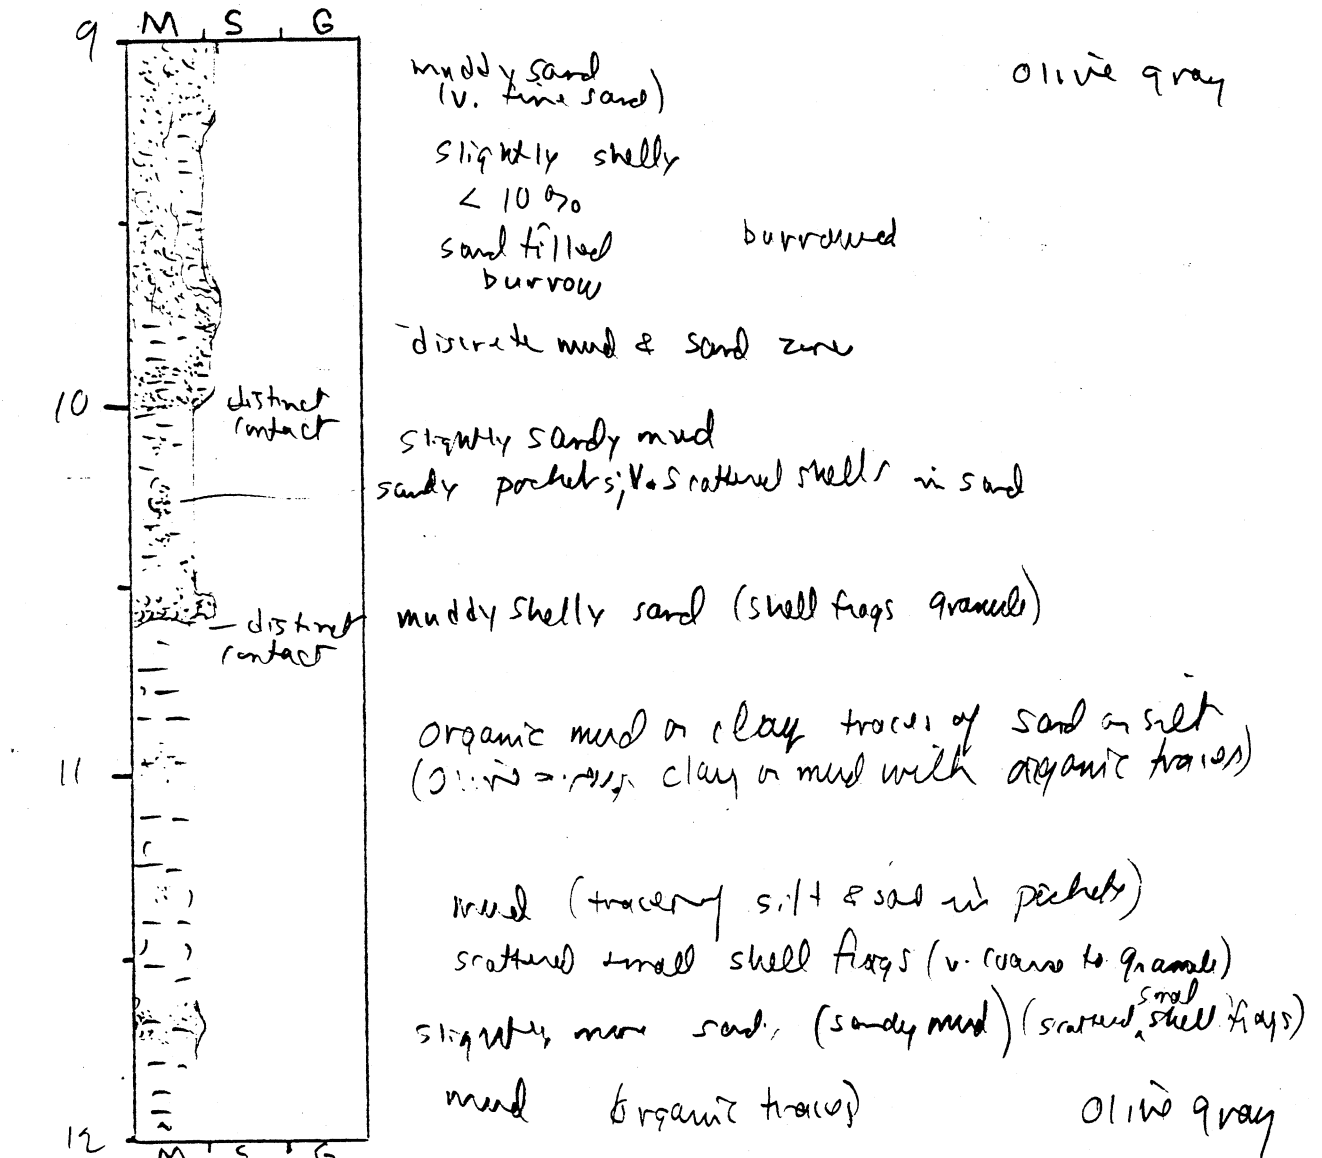 M S G
9
muddy sand
(v. fine sand)
olive gray
slightly shelly
< 10%
sand filled
burrow
burrowed
discrete mud & sand zone
10
distinct
contact
slightly sandy mud
sandy pockets; v. scattered shells in sand
muddy shelly sand (shell frags granule)
distinct
contact
organic mud or clay traces of sand or silt
11
(olive gray clay or mud with organic traces)
mud (traces of silt & sand in pockets)
scattered small shell frags (v. coarse to granule)
slightly more sand, (sandy mud) (scattered small shell frags)
mud (organic traces)
olive gray
12
M S G